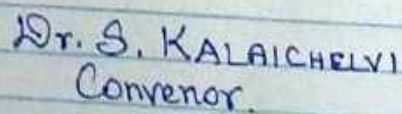 Dr. S. KALAICHELVI
Convenor.